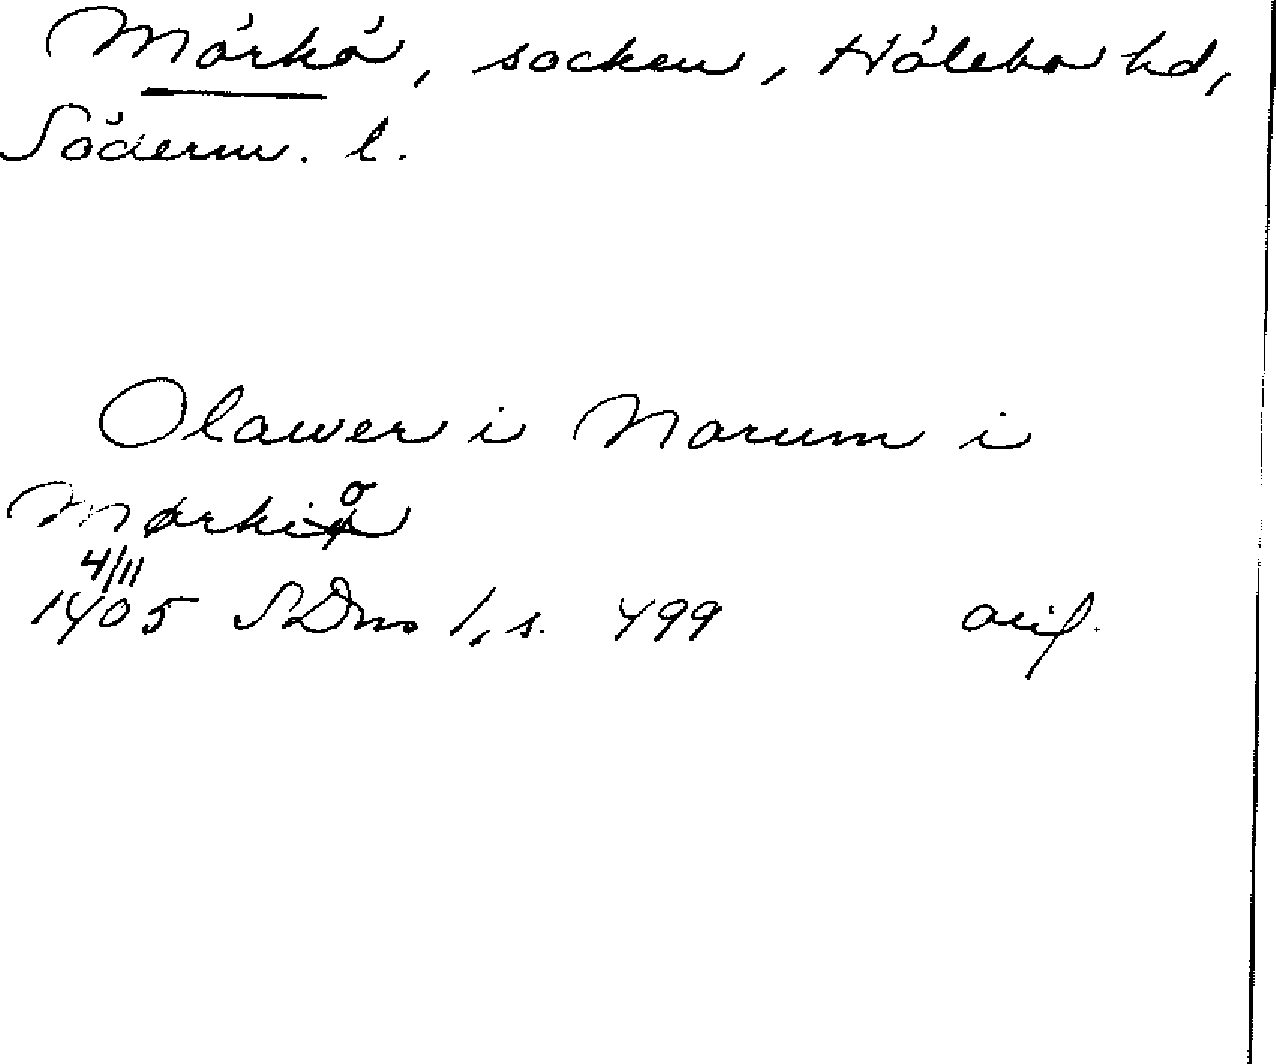 Mörkö, socken, Hölebo hd,
Söderm. l.
Olawer i Norum i
4/11
1405 SDns 1, s. 499 orig.